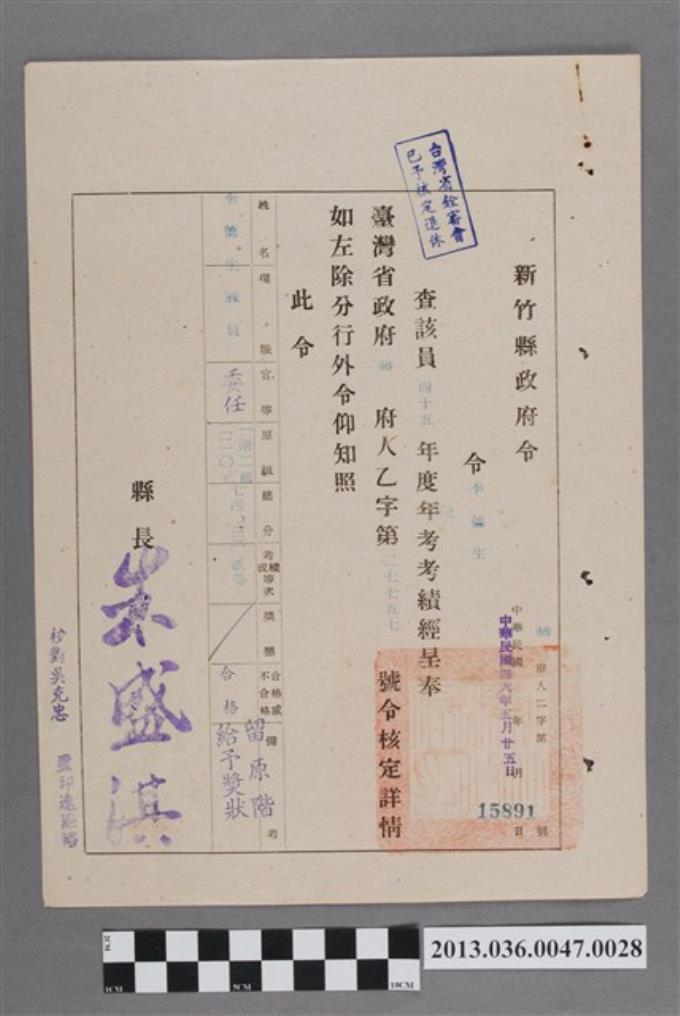 新竹縣政府令
府人二字第
15891
號
中華民國 年 月 日
中華民國四六年五月廿五日
令
李德生
台灣省銓審會
已予核定退休
查該員四十五年度年考考績經呈奉
臺灣省政府 府人乙字第二七七五七號令核定詳情
如左除分行外令仰知照
此令
姓名 現職 官等 原級 總分 考績等次或 獎懲 合格或不合格 備考
李德生 課員 委任 合格 留原階給予獎狀
縣長 朱盛淇
校對吳克忠
監印
2013.036.0047.0028
2CM
1CM
5CM
10CM